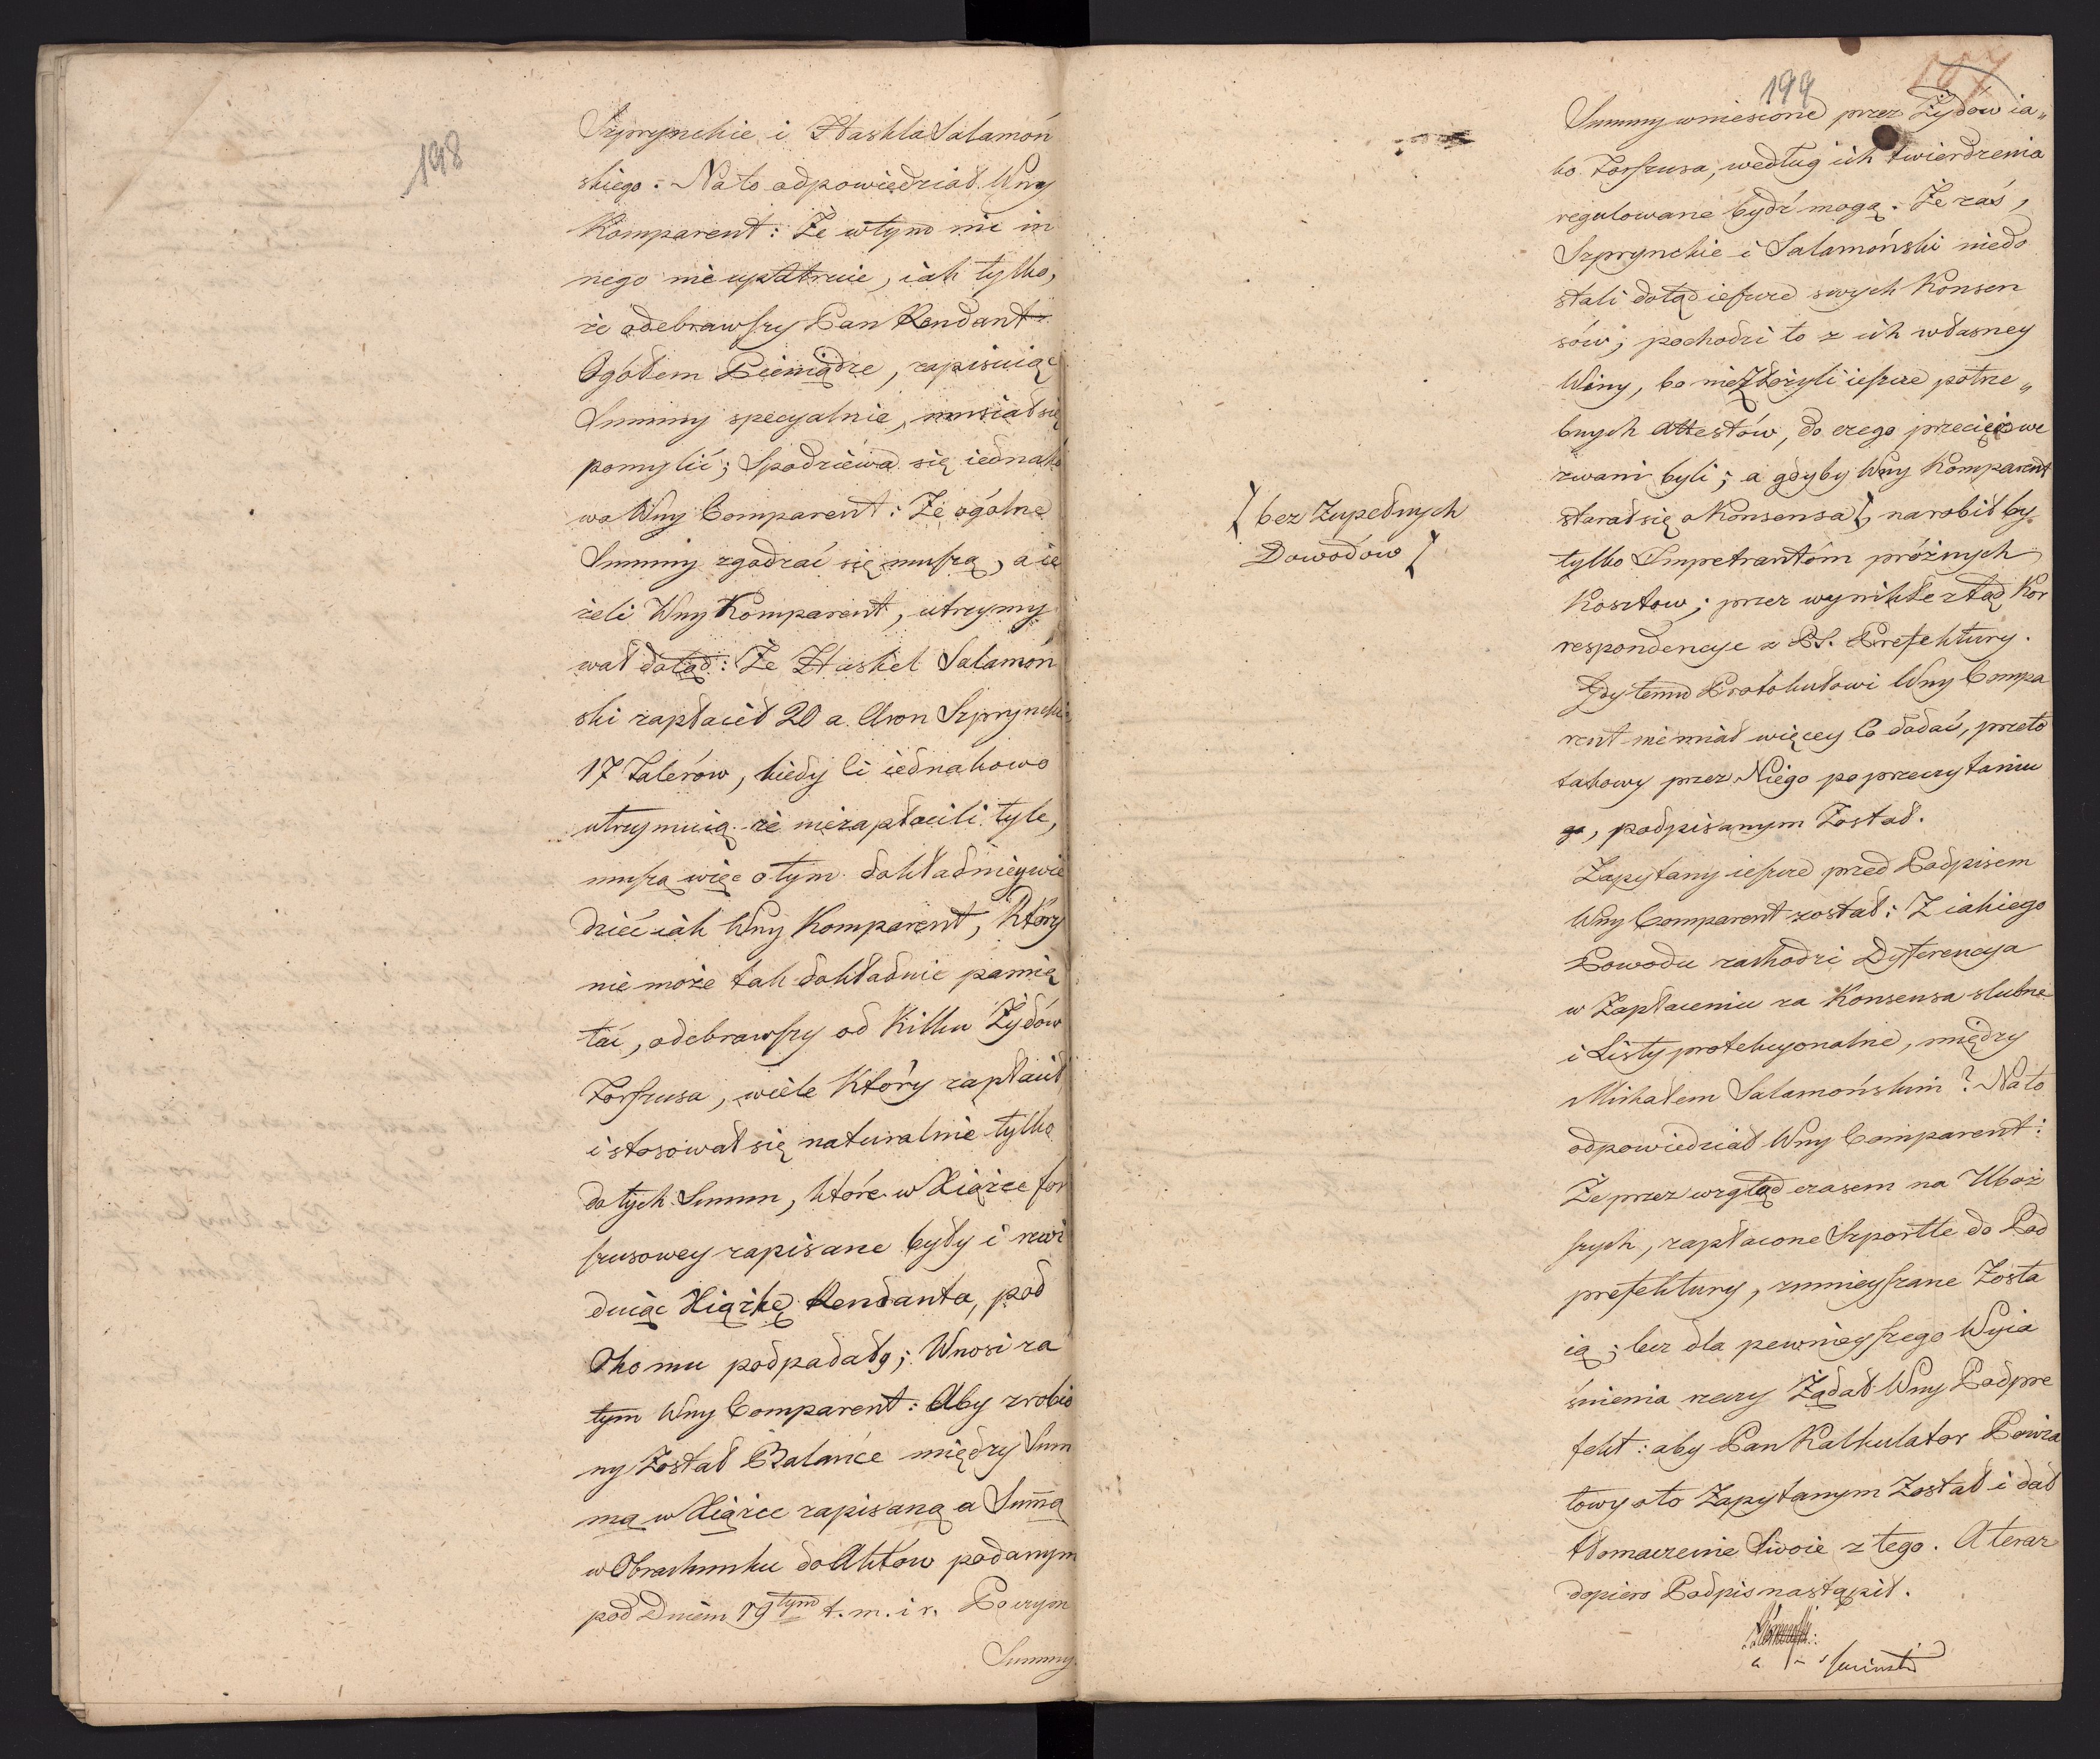 198
Szprynckie i Haskla Salamoń
skiego: Na to odpowiedział Wny
Komparent: Że w tym nic in
nego nie upatruie, iak tylko,
że odebrawszy Pan Rendant
Ogółem Pieniądze, zapisuiąc
Summy specyalnie, musiał się
pomylić; Spodziewa się iednako
wo Wny Comparent: Że ogólne
Summy zgadzać się muszą, a ie
żeli Wny Komparent, utrzymy
wał dotąd: Że Haskel Salamoń
ski zapłacił 20 a Aron Szprynckie
17 Talerów, kiedy Ci iednakowo
utrzymuią że niezapłacili tyle,
muszą więc o tym dokładniey wie
dzieć iak Wny Komparent, który
nie może tak dokładnie pamię
tać, odebrawszy od Kilku Żydów
Forszusa, wiele Który zapłacił
i stosował się naturalnie tylko
do tych Summ, które w Xiążce for
szusowey zapisane były i rewi
duiąc Xiążkę Rendanta, pod
Oko mu podpadały; Wnosi za
tym Wny Comparent: Aby zrobio
ny Został Balance między Sum
mą w Xiążce zapisaną a Summą
w Obrachunku do Aktów podanym
pod Dniem 19tym t. m. i r. Po czym
Summy
199
107
Summy wniesione przez Żydów ia„
ko Forszusa, według ich twierdzenia
regulowane bydź mogą. Że zaś,
Szprynckie i Salamoński niedo
stali dotąd ieszcze swych Konsen
sów; pochodzi to z ich własney
Winy, bo niezłożyli ieszcze potrze„
bnych Attestów, do czego przecież we
zwani byli; a gdyby Wny Komparent
starał się o Konsensa, narobił by
{ bez Zupełnych
Dowodów {
tylko Impetrantom próżnych
Kosztow; przez wynikłe ztąd Kor
respondencye z PS. Prefektury.
Gdy temu Protokułowi Wny Compa
rent nie miał więcey Co dodać, przeto
takowy przez Niego po przeczytaniu
go, podpisanym Został.
Zapytany ieszcze przed Podpisem
Wny Comparent został: Z iakiego
Powodu zachodzi Dyferencya
w Zapłaceniu za Konsensa slubne
i Listy protekcyonalne, między
Michałem Salamońskim? Na to
odpowiedział Wny Comparent:
Że przez wzgląd czasem na Uboż
szych, zapłacone Szportle do Pod
prefektury, zmnieyszane Zosta
ią; lecz dla pewnieyszego Wyia
śnienia rzeczy Żądał Wny Podpre
fekt: aby Pan Kalkulator Powia
towy o to Zapytanym Został i dał
tłomaczenie Swoie z tego. A teraz
dopiero Podpis nastąpił.